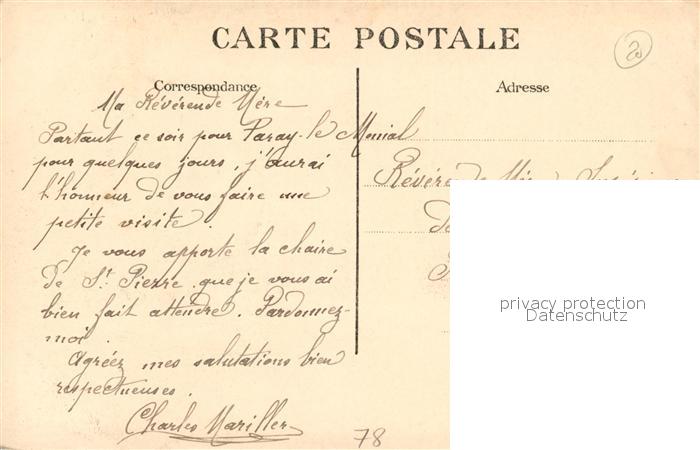 CARTE POSTALE
20
Correspondance
Adresse
Ma Révérende Mère
Partant ce soir pour Paray-le Monial
pour quelques jours, j'aurai
l'honneur de vous faire une
petite visite.
Je vous apporte la chaire
de St. Pierre que je vous ai
bien fait attendre. Pardonnez-
moi.
Agréez mes salutations bien
respectueuses.
Charles Mariller
78
Révérende Mère
privacy protection
Datenschutz